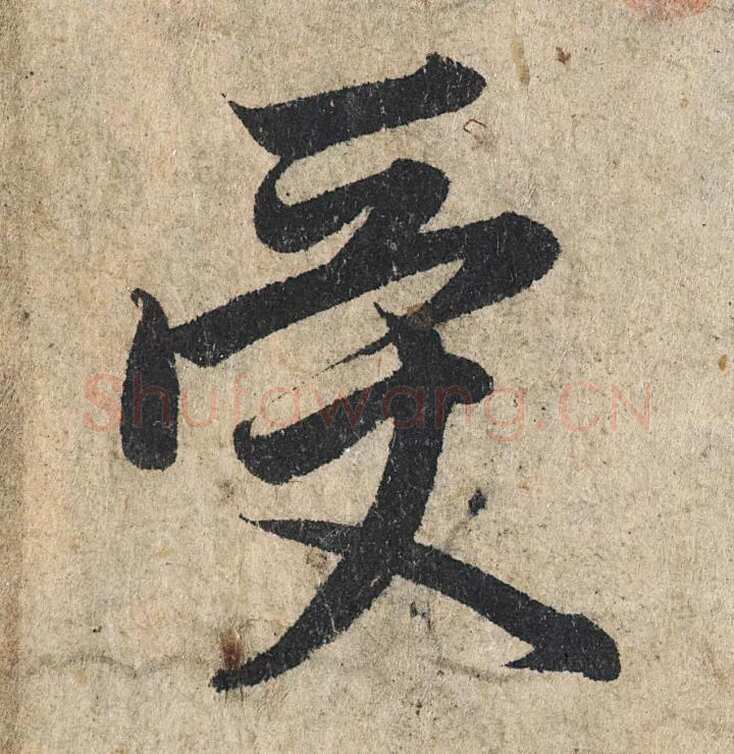 受
Shufawang.CN